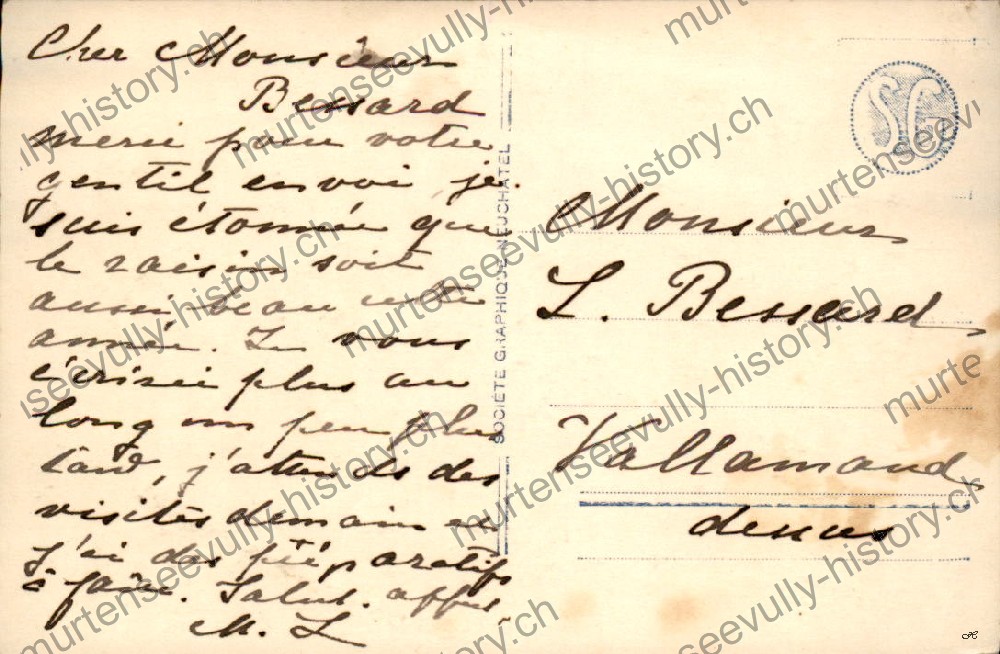 Cher Monsieur
Bessard
merci pour votre
gentil envoi je
suis étonnée que
le raisin soit
aussi beau cette
année. Je vous
écrirai plus au
long un peu plus
tard, j'attends des
visites demain et
j'ai des préparatifs
à faire. Salut. affec
M. L
SOCIÉTÉ GRAPHIQUE NEUCHÂTEL
SG
Monsieur
L. Bessard
Vallamand
dessus
murtenseevully-history.ch
murtenseevully-history.ch
murtenseevully-history.ch
murtenseevully-history.ch
murtenseevully-history.ch
murtenseevully-history.ch
H